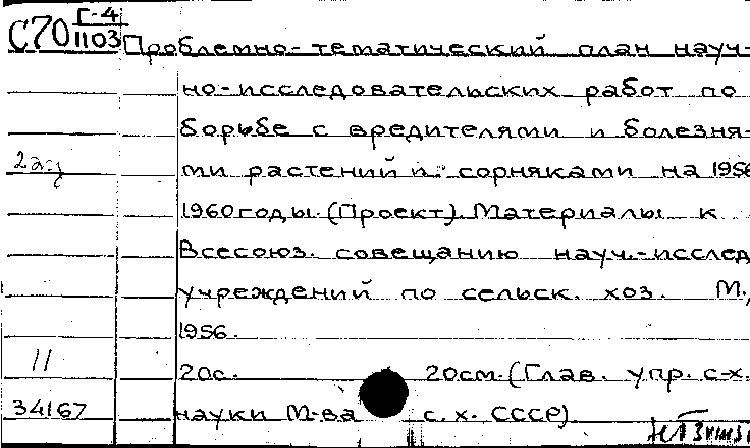 С70 Г-4
1103
Проблемно-тематический план науч-
но-исследовательских работ по
борьбе с вредителями и болезня-
2 экз
ми растений и сорняками на 1956
1960 годы. (Проект). Материалы к
Всесоюз. совещанию науч.-исслед
учреждений по сельск. хоз. М.,
1956.
11
20с. 20см. (Глав. упр. с-х.
34167
науки М-ва с.х. СССР)